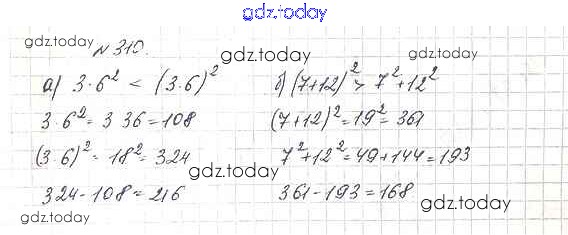 gdz.today
gdz.today № 310. gdz.today gdz.today
а) 3·6² < (3·6)² б) (7+12)² > 7²+12²
3·6² = 3 36 = 108 (7+12)² = 19² = 361
(3·6)² = 18² = 324 7²+12² = 49+144 = 193
gdz.today
324 - 108 = 216 361 - 193 = 168
gdz.today gdz.today